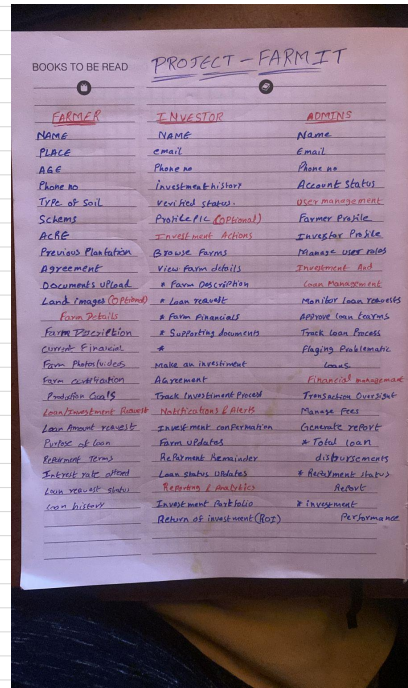 PROJECT - FARMIT
BOOKS TO BE READ
FARMER
NAME
PLACE
AGE
Phone no
Type of Soil
Schems
ACRE
Previous Plantation
Agreement
Documents upload
Land images (Optional)
Farm Details
Farm Description
Current Financial
Farm Photos/videos
Farm certification
Production Goals
Loan/Investment Request
Loan Amount request
Purpose of Loan
Repayment Terms
Interest rate offered
Loan request status
Loan history
INVESTOR
NAME
email
Phone no
investment history
verified status.
Profile PIC (Optional)
Investment Actions
Browse Farms
View Farm details
* Farm Description
* Loan request
* Farm Financials
* Supporting documents
*
Make an investiment
Agreement
Track Investiment Process
Notifications & Alerts
Investment confermation
Farm updates
RePayment Remainder
Loan status updates
Reporting & Analytics
Investment Portfolio
Return of investment (ROI)
ADMINS
Name
Email
Phone no
Account Status
User management
Farmer Profile
Investor Profile
Manage user roles
Investment And
Loan Management
Monitor Loan requests
Approve loan tearms
Track Loan Process
Flaging Problematic
Loans
Financial management
Transaction Oversight
Manage Fees
Generate report
* Total loan
disbursements
* Repayment status
Report
* investment
Performance